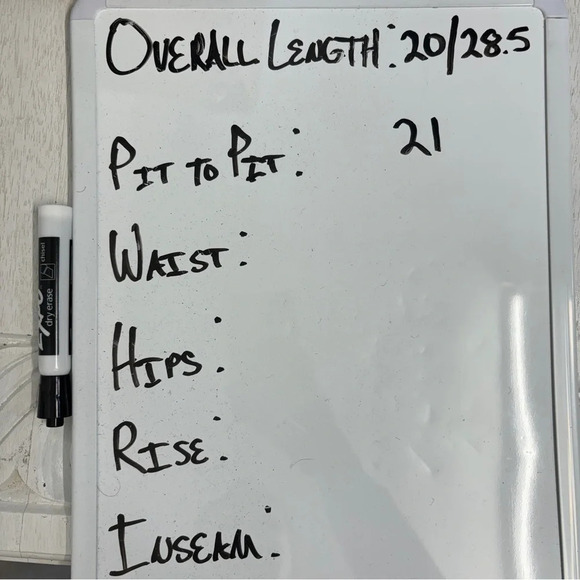 OVERALL LENGTH: 20/28.5
PIT TO PIT: 21
WAIST:
HIPS:
RISE:
INSEAM:
EXPO
dry erase
chisel